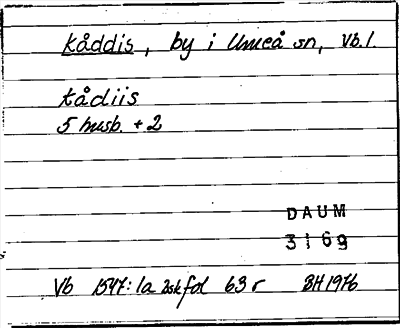 Kåddis, by i Umeå sn, Vb. l.
kådiis
5 husb. + 2
DAUM
3169
Vb 1547: 1a 2skfol 63 r BH 1976